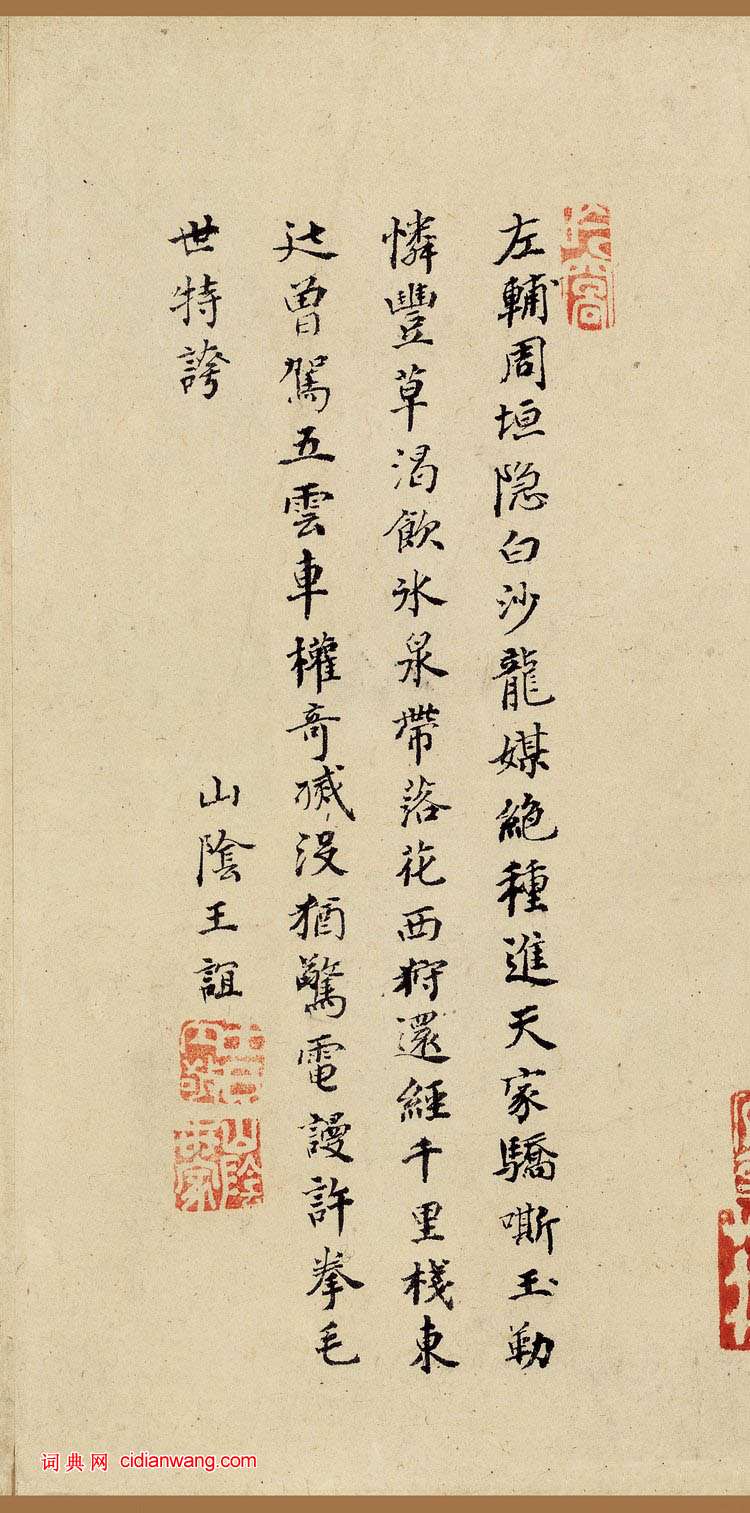 左輔周垣隐白沙龍媒絶種進天家驕嘶玉勒
憐豐草渴飲冰泉帶落花西狩還經千里棧東
曾駕五雲車權奇滅没猶驚電謾許拳毛
世特誇
山陰王誼
山陰
词典网 cidianwang.com